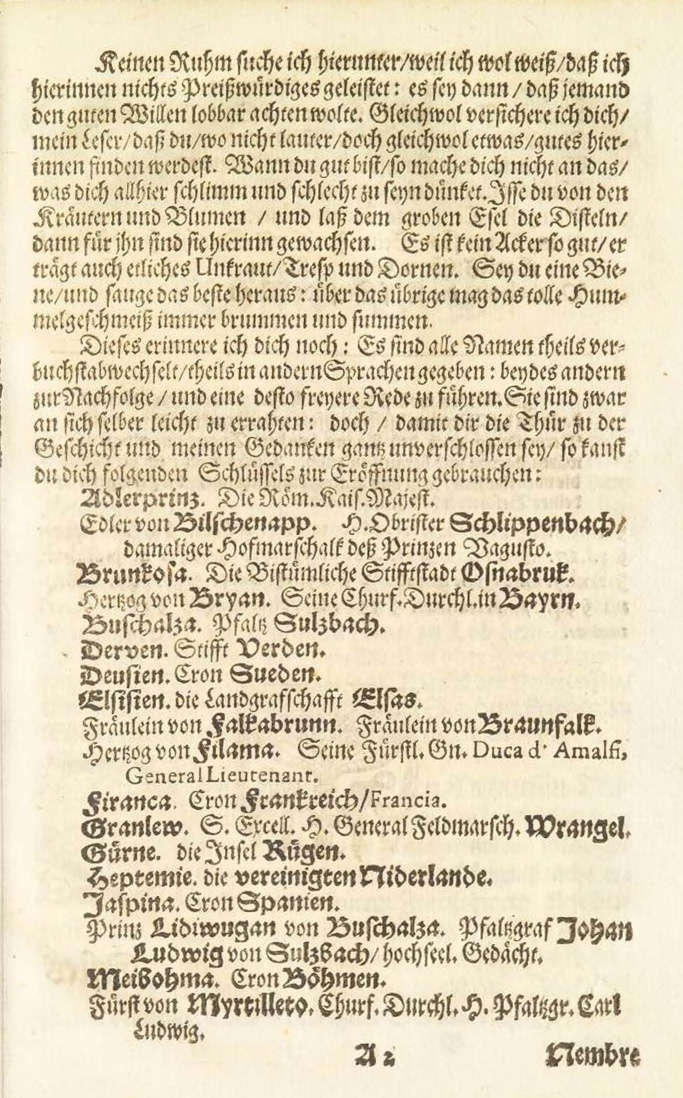 Keinen Ruhm suche ich hierunter/weil ich wol weiß/daß ich
hierinnen nichts Preißwürdiges geleistet: es sey dann / daß jemand
den guten Willen lobbar achten wolte. Gleichwol versichere ich dich/
mein Leser/daß du/wo nicht lauter/doch gleichwol etwas/gutes hier-
innen finden werdest. Wann du gut bist/so mache dich nicht an das/
was dich allhier schlimm und schlecht zu seyn dünket. Isse du von den
Kräutern und Blumen / und laß dem groben Esel die Disteln/
dann für jhn sind sie hierinn gewachsen. Es ist kein Acker so gut/er
trägt auch etliches Unkraut/Tresp und Dornen. Sey du eine Bie-
ne/und sauge das beste heraus: über das übrige mag das tolle Hum-
melgeschmeiß immer brummen und summen.
Dieses erinnere ich dich noch: Es sind alle Namen theils ver-
buchstabwechselt/theils in andern Sprachen gegeben: beydes andern
zur Nachfolge / und eine desto freyere Rede zu führen. Sie sind zwar
an sich selber leicht zu errahten: doch / damit dir die Thür zu der
Geschicht und meinen Gedanken gantz unverschlossen sey/ so kanst
du dich folgenden Schlüssels zur Eröffnung gebrauchen:
Adlerprinz. Die Röm. Kais. Majest.
Edler von Bilschenapp. H. Obrister Schlippenbach/
damaliger Hofmarschalk deß Prinzen Vagusto.
Brunkosa. Die Bistümliche Stifftstadt Osnabruk.
Hertzog von Bryan. Seine Churf. Durchl. in Bayrn.
Buschalza. Pfaltz Sulzbach.
Derven. Stifft Verden.
Deusien. Cron Sueden.
Elsisien. die Landgrafschafft Elsas.
Fräulein von Falkabrunn. Fräulein von Braunfalk.
Hertzog von Filama. Seine Fürstl. Gn. Duca d' Amalfi,
General Lieutenant.
Firanca. Cron Frankreich/Francia.
Granlew. S. Excell. H. General Feldmarsch. Wrangel.
Gürne. die Insel Rügen.
Heptemie. die vereinigten Niderlande.
Jaspina. Cron Spanien.
Prinz Lidiwugan von Buschalza. Pfaltzgraf Johan
Ludwig von Sulzbach/ hochseel. Gedächt.
Meibohma. Cron Böhmen.
Fürst von Myrtilleto. Churf. Durchl. H. Pfaltzgr. Carl
Ludwig.
A 2 Nembre